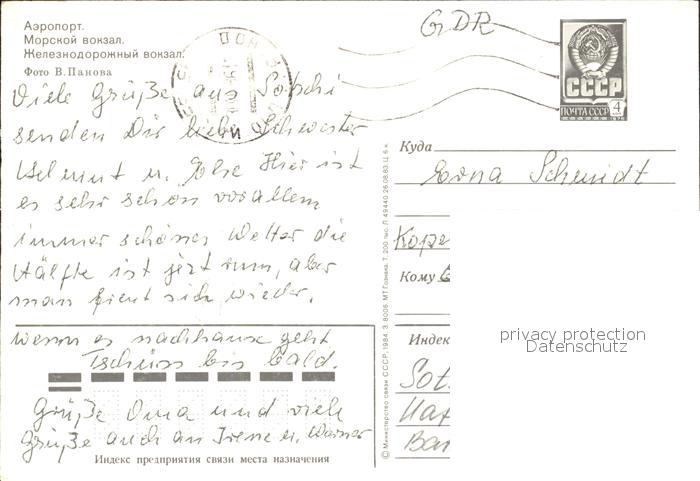 Аэропорт.
Морской вокзал.
Железнодорожный вокзал.
Фото В.Панова
GDR
СССР
ПОЧТА СССР
4
Viele Grüße aus Sotschi
senden Dir liebe Schwester
Helmut u. Else Hier ist
es sehr schön vor allem
immer schönes Wetter die
Hälfte ist jetzt rum, aber
man freut sich wieder,
wenn es nachhause geht
Tschüss bis bald.
Grüße Oma und viele
Grüße auch an Irene u. Werner
Индекс предприятия связи места назначения
© Министерство связи СССР, 1984. З. 8006. МТ Гознака. Т. 200 тыс. Л 49440 26.08.83. Ц. 6 к.
Куда
Erna Schmidt
Кому
Индек
Sot
privacy protection
Datenschutz